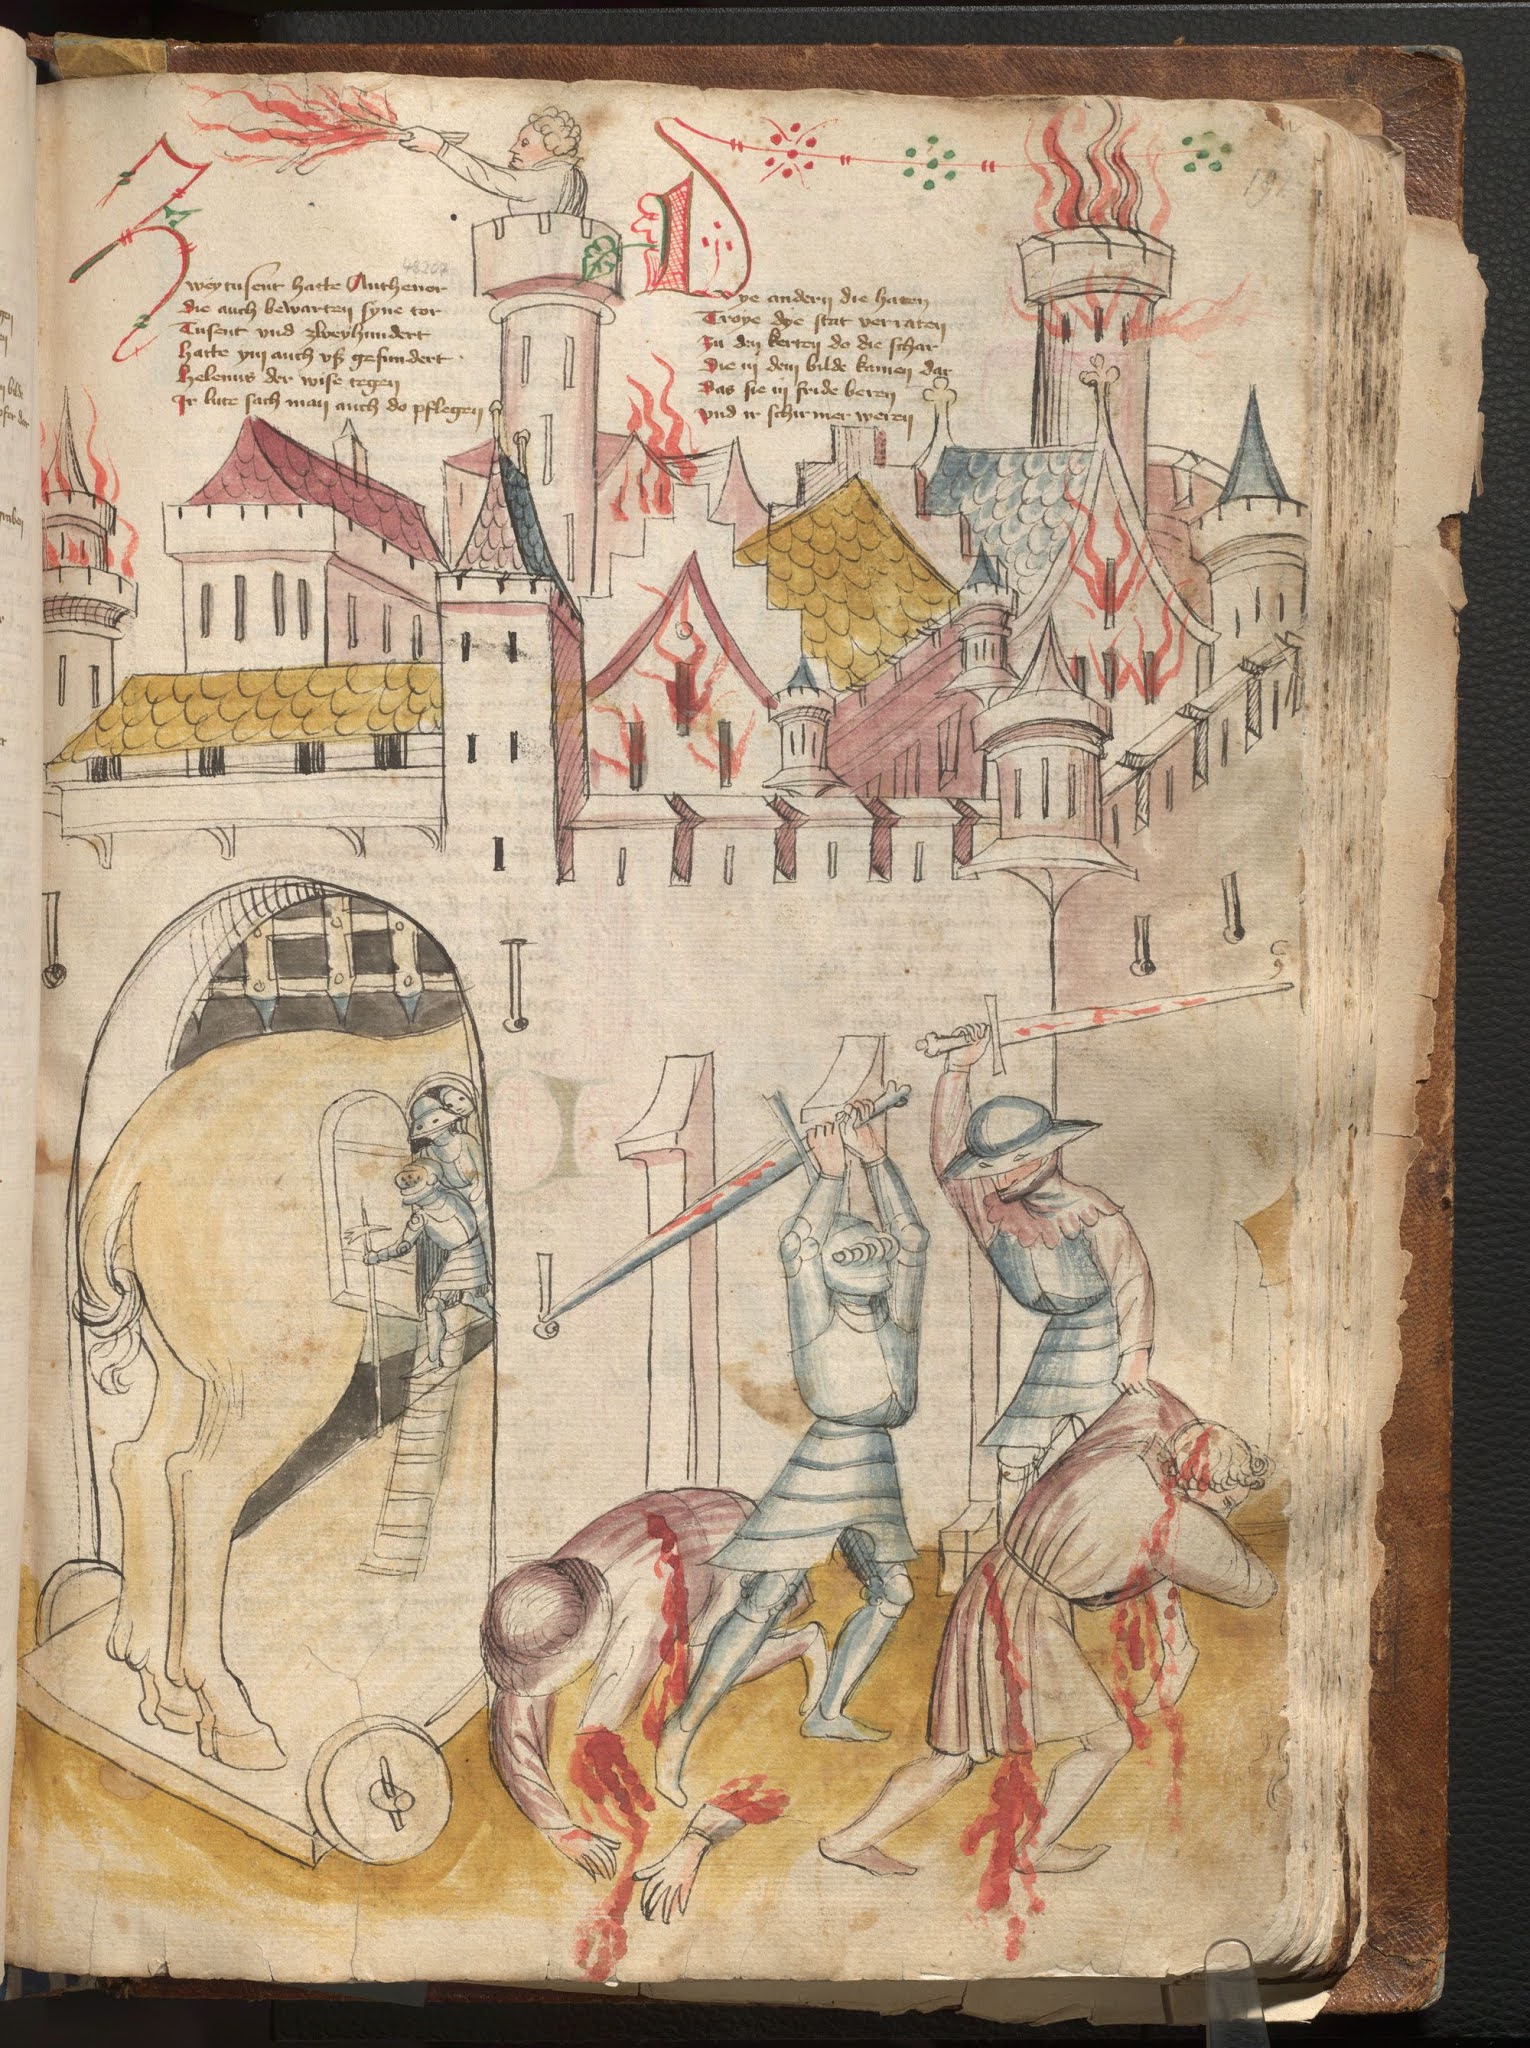 Zweytusent hatte Anthenor
Die auch bewarten syne tor
Tusent vnd zweyhundert
hatte ym auch vß gesundert
Helenus der wise tegen
Ir lute sach man auch do pflegen
Dye andern die haten
Troye dye stat verraten
Zu den kerten do die schar
Die in dem bilde kamen dar
Das sie in fride beren
vnd ir schirmer weren